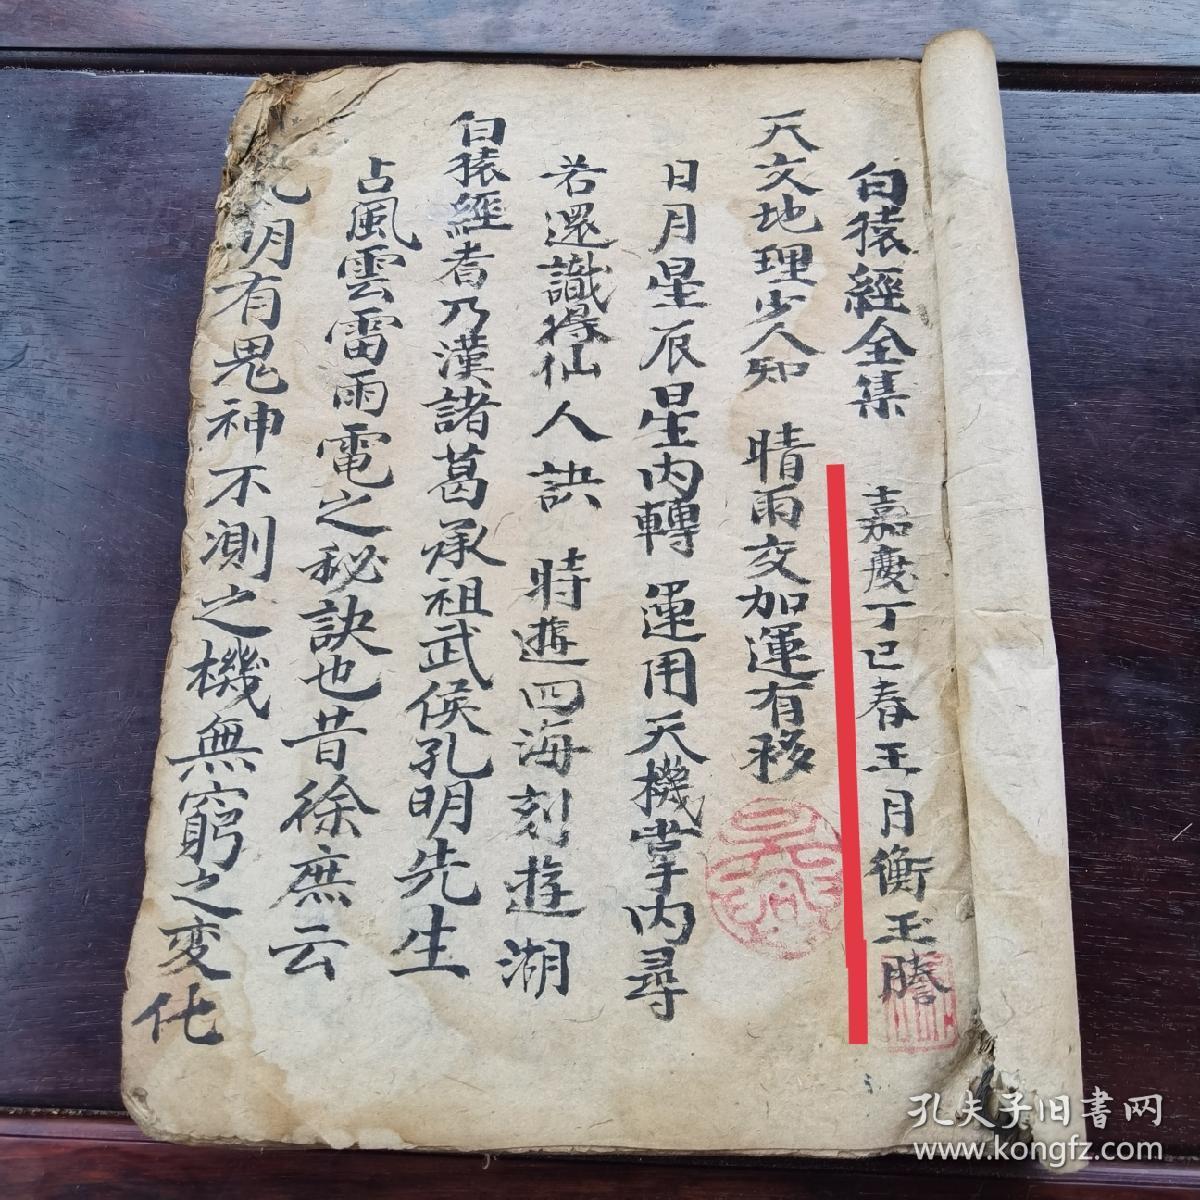 白猿經全集 嘉慶丁巳春王月衡王謄
天文地理少人知 晴雨交加運有移
日月星辰星内轉 運用天機掌内尋
若還識得仙人訣 時遊四海刻遊湖
白猿經者乃漢諸葛承祖武侯孔明先生
占風雲雷雨電之秘訣也昔徐庶云
孔明有鬼神不測之機無窮之変化
孔夫子旧書网
www.kongfz.com